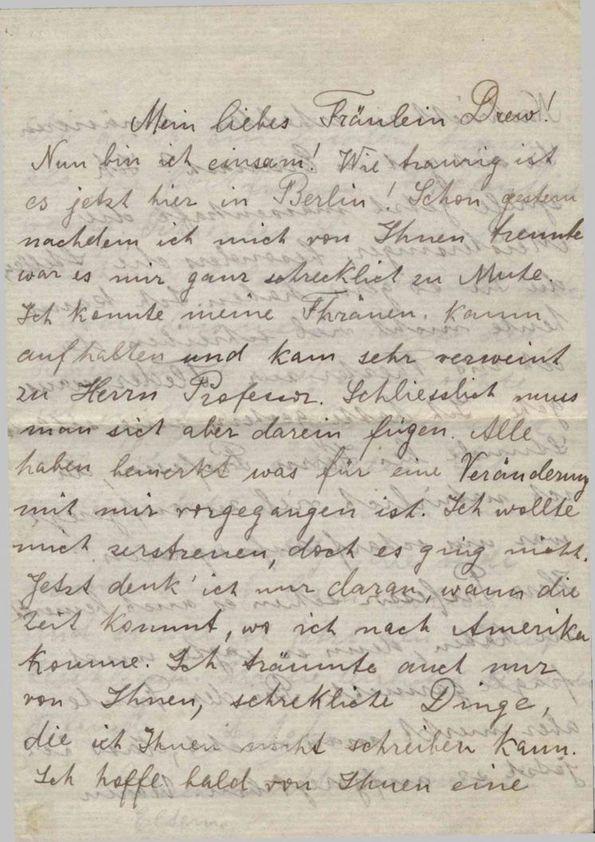 Mein liebes Fräulein Drew!
Nun bin ich einsam! Wie traurig ist
es jetzt hier in Berlin! Schon gestern
nachdem ich mich von Ihnen trennte
war es mir ganz schrecklich zu Mute.
Ich konnte meine Thränen kaum
aufhalten und kam sehr verweint
zu Herrn Professor. Schliesslich muss
man sich aber darein fügen. Alle
haben bemerkt was für eine Veränderung
mit mir vorgegangen ist. Ich wollte
mich zerstreuen, doch es ging nicht.
Jetzt denk' ich nur daran, wann die
Zeit kommt, wo ich nach Amerika
komme. Ich träumte auch nur
von Ihnen, schrekliche Dinge,
die ich Ihnen nicht schreiben kann.
Ich hoffe bald von Ihnen eine